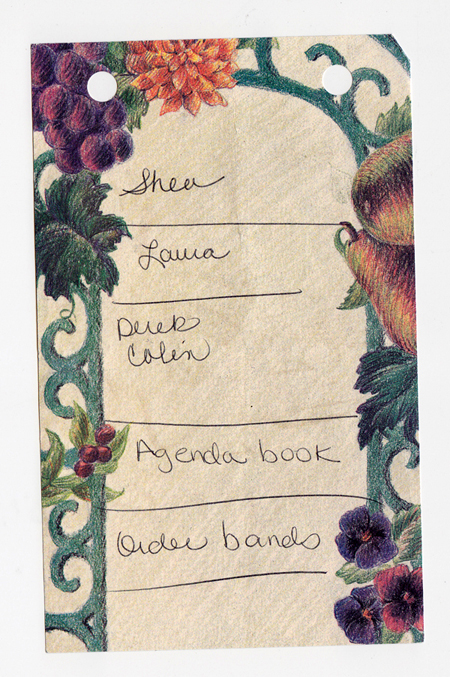 Shea
Laura
Derek
Colin
Agenda book
Order bands